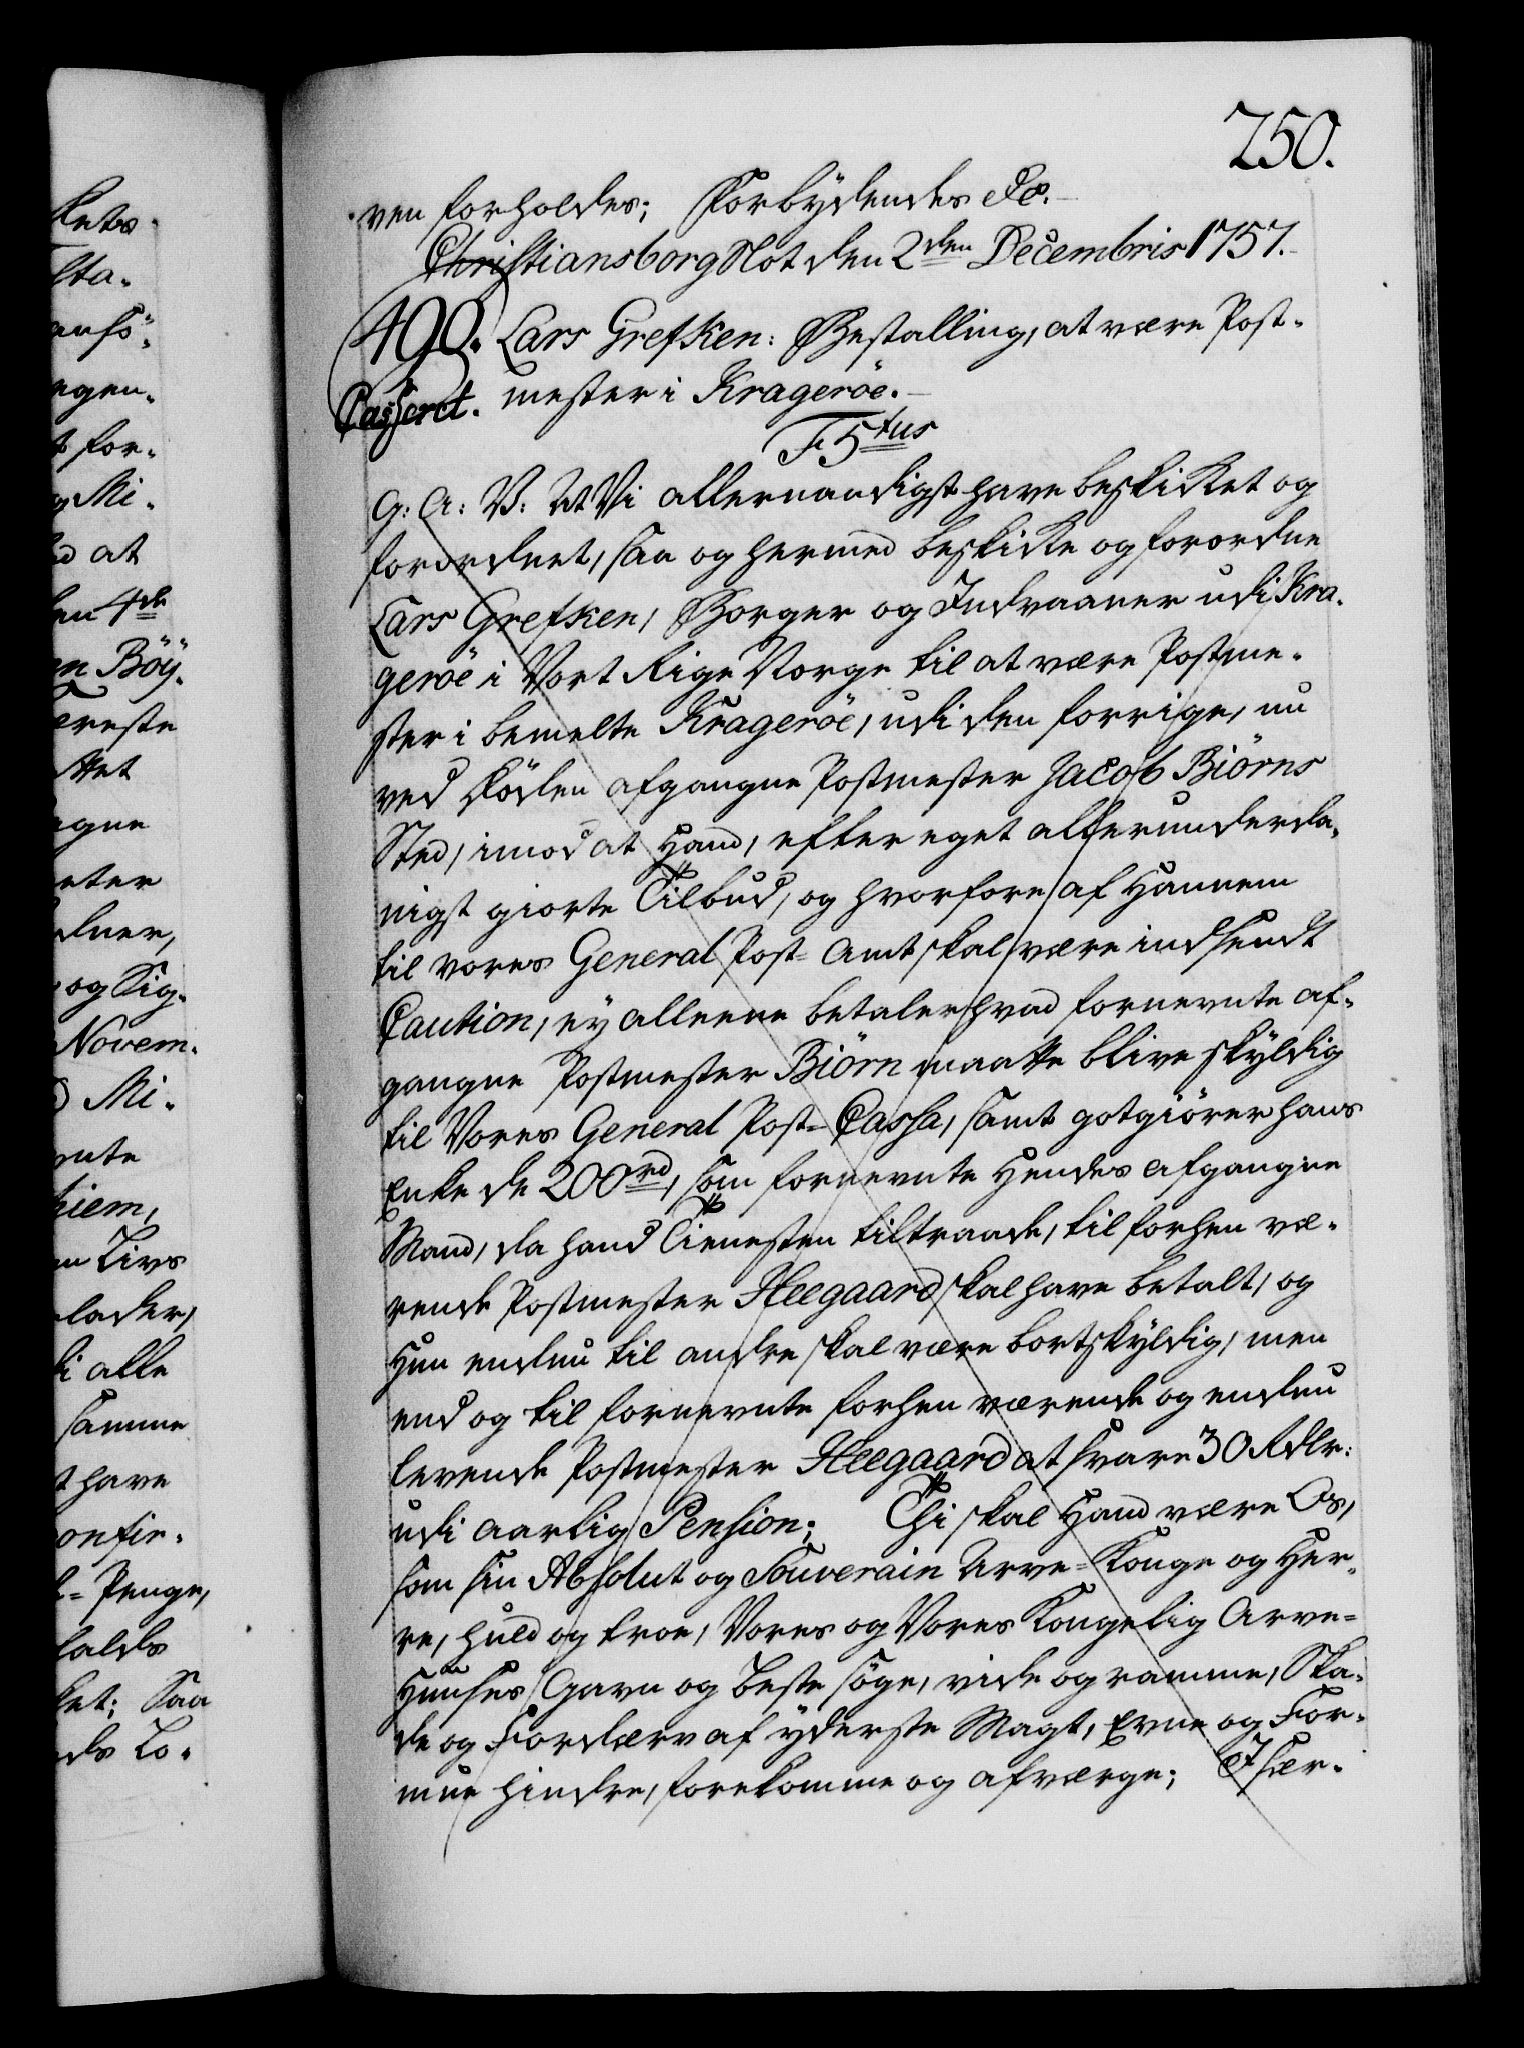 250.
ven forholdes; Forbydendes Ec.
Christiansborg Slot den 2den Decembris 1757.
490. Lars Grefken: Bestalling, at være Post-
Passeret. mester i Krageröe.
F 5tus
G: A: V: At Vi allernaadigst have beskikket og
forordnet, saa og hermed beskikke og forordne
Lars Grefken, Borger og Indvaaner udi Kra-
geröe i Vort Rige Norge til at være Postme-
ster i bemelte Krageröe, udi den forrige, nu
ved Döden afgangne Postmester Jacob Biörns
Sted, imod at Hand, efter eget allerunderda-
nigst giorte Tilbud, og hvorfore af Hannem
til vores General Post-Amt skal være indsendt
Caution, ey alleene betaler hvad fornevnte af-
gangne Postmester Biörn maatte blive skyldig
til Vores General Post-Cassa, samt gotgiörer hans
Enke de 200rd, som fornevnte Hendes afgangne
Mand, da hand Tienesten tiltraade, til forhen væ-
rende Postmester Heegaard skal have betalt, og
Hun endnu til andre skal være bortskyldig, men
end og til fornevnte forhen værende og endnu
levende Postmester Heegaard at svare 30 Rdlr:
udi aarlig Pension; Thi skal Hand være Os,
som sin Absolut og Souverain Arve-Konge og Her-
re, huld og troe, Vores og Vores Kongelig Arve-
Huuses Gavn og beste söge, vide og ramme, Ska-
de og Fordærv af yderste Magt, Evne og For-
mue hindre, forekomme og afværge; Især-